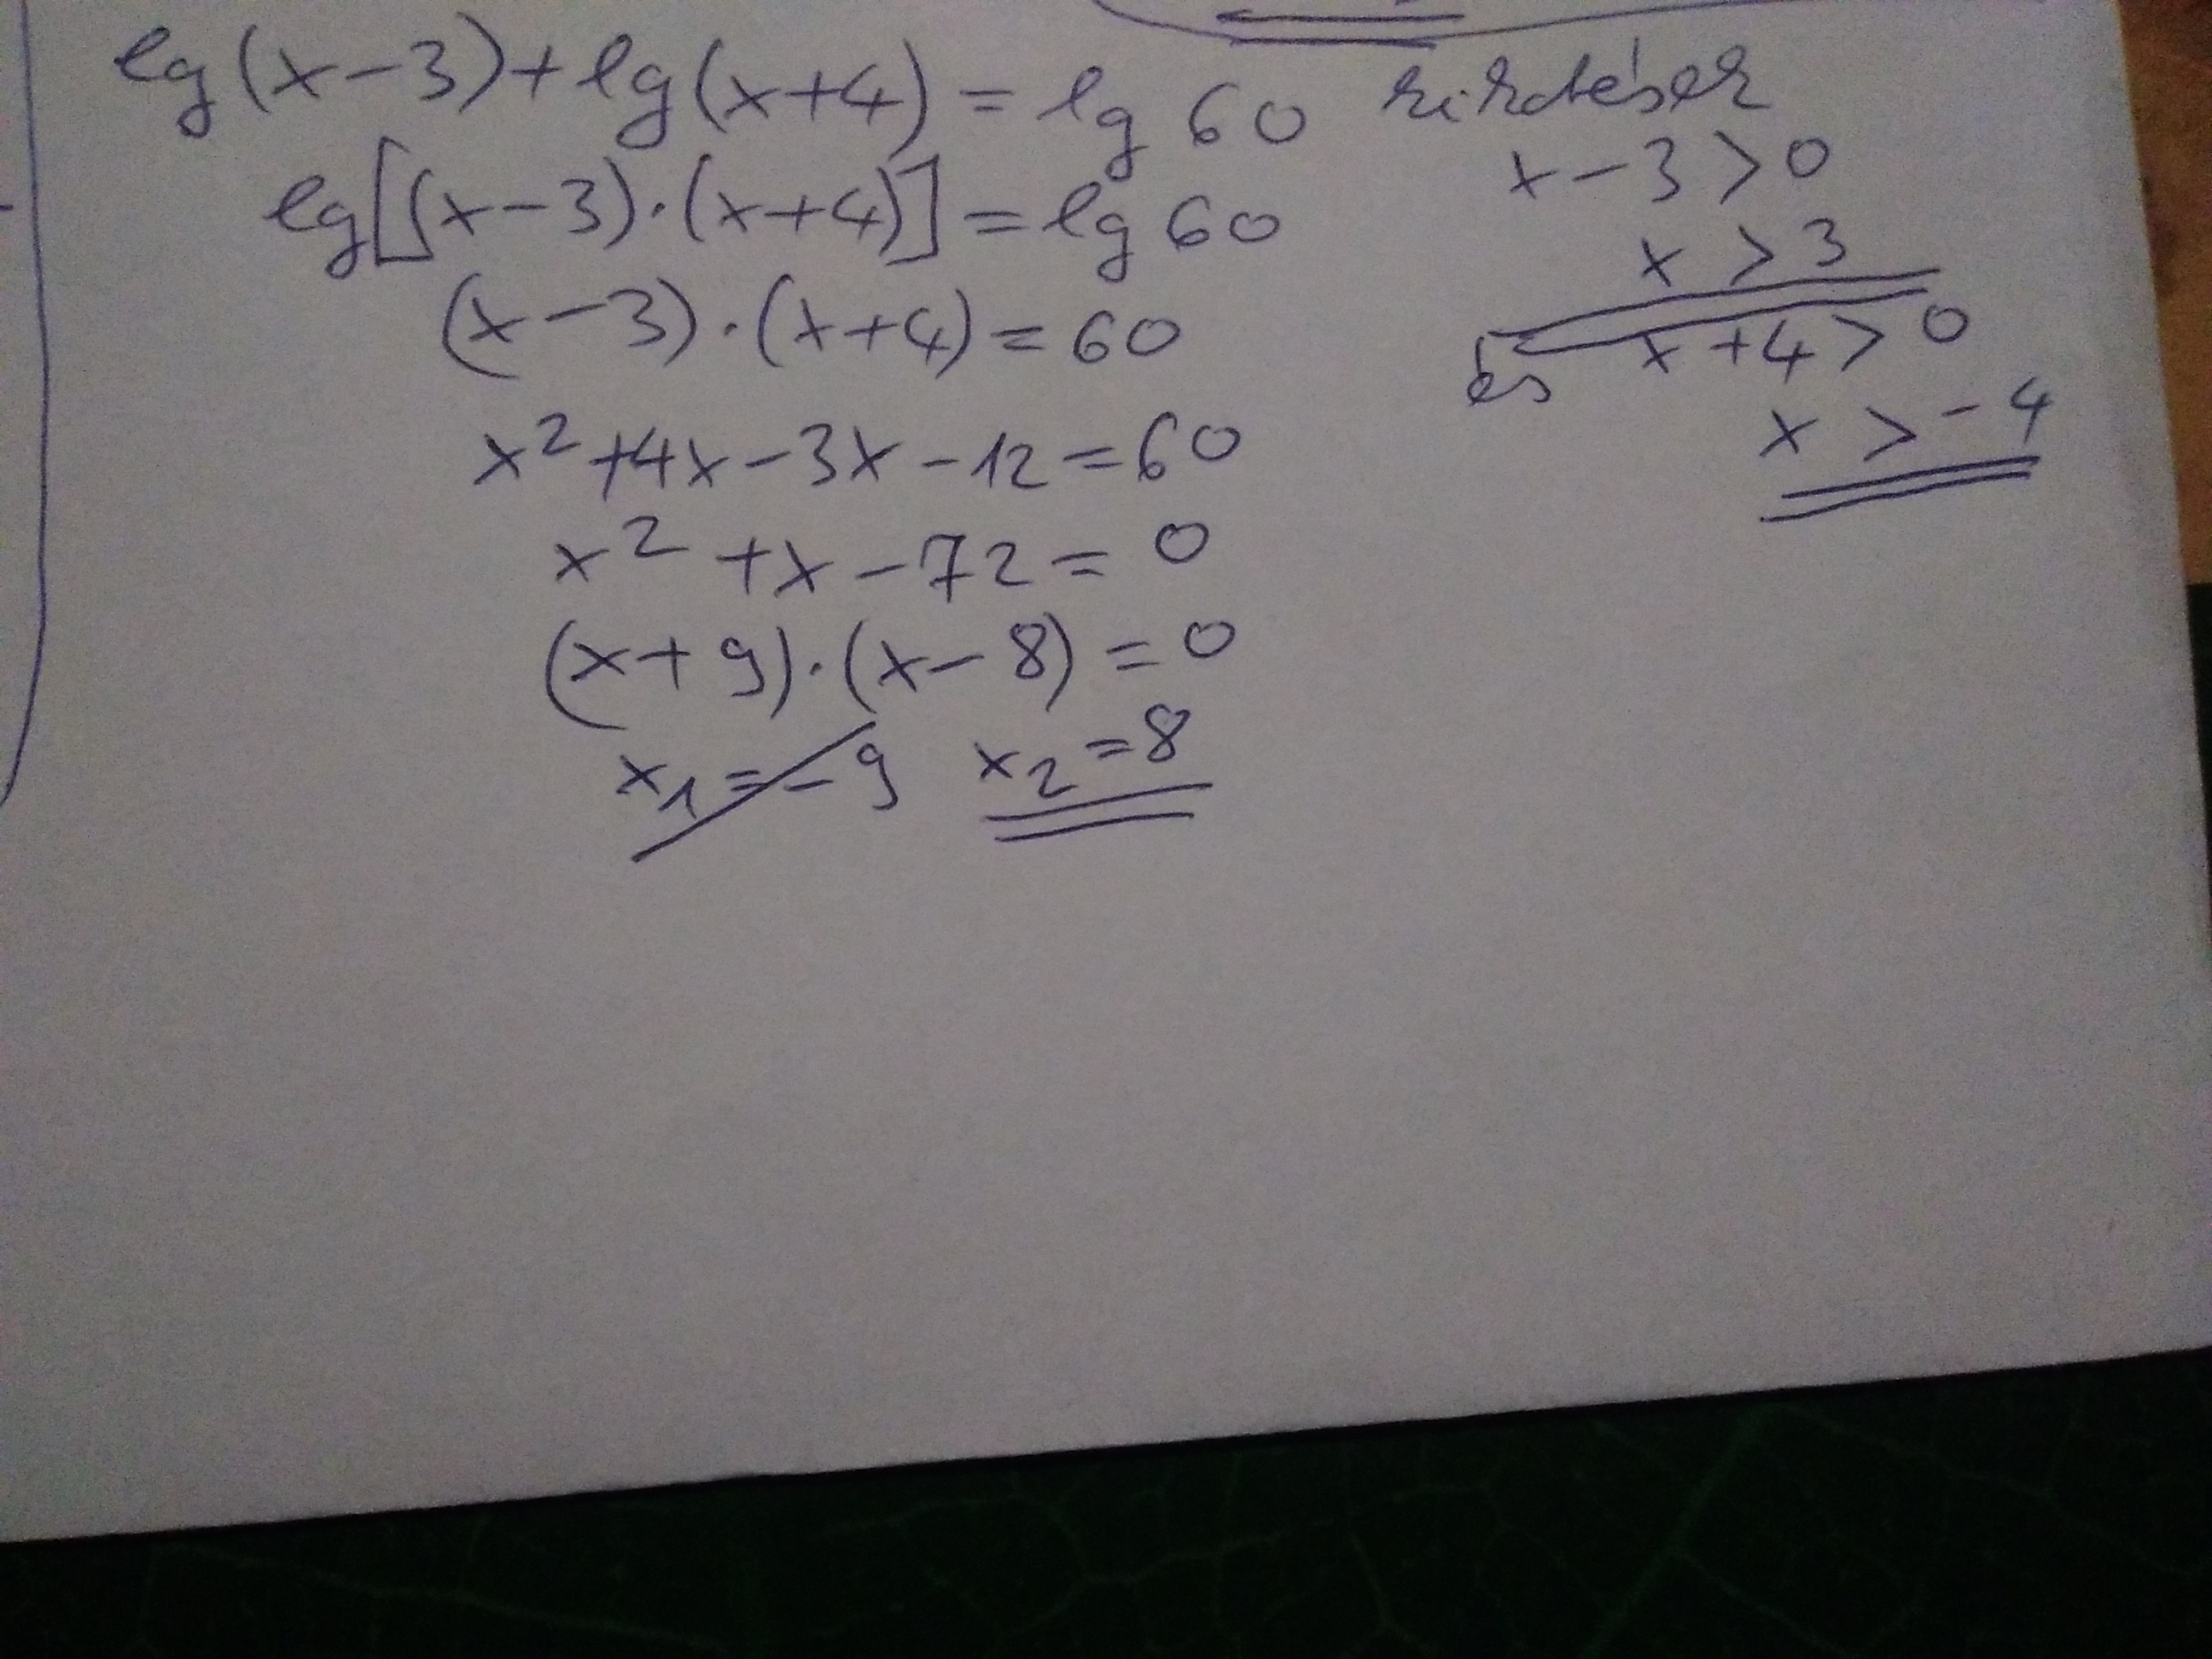 lg(x-3)+lg(x+4)=lg 60
lg[(x-3)·(x+4)]=lg 60
(x-3)·(x+4)=60
x²+4x-3x-12=60
x²+x-72=0
(x+9)·(x-8)=0
x₁=-9 x₂=8
x-3>0
x>3
és x+4>0
x>-4